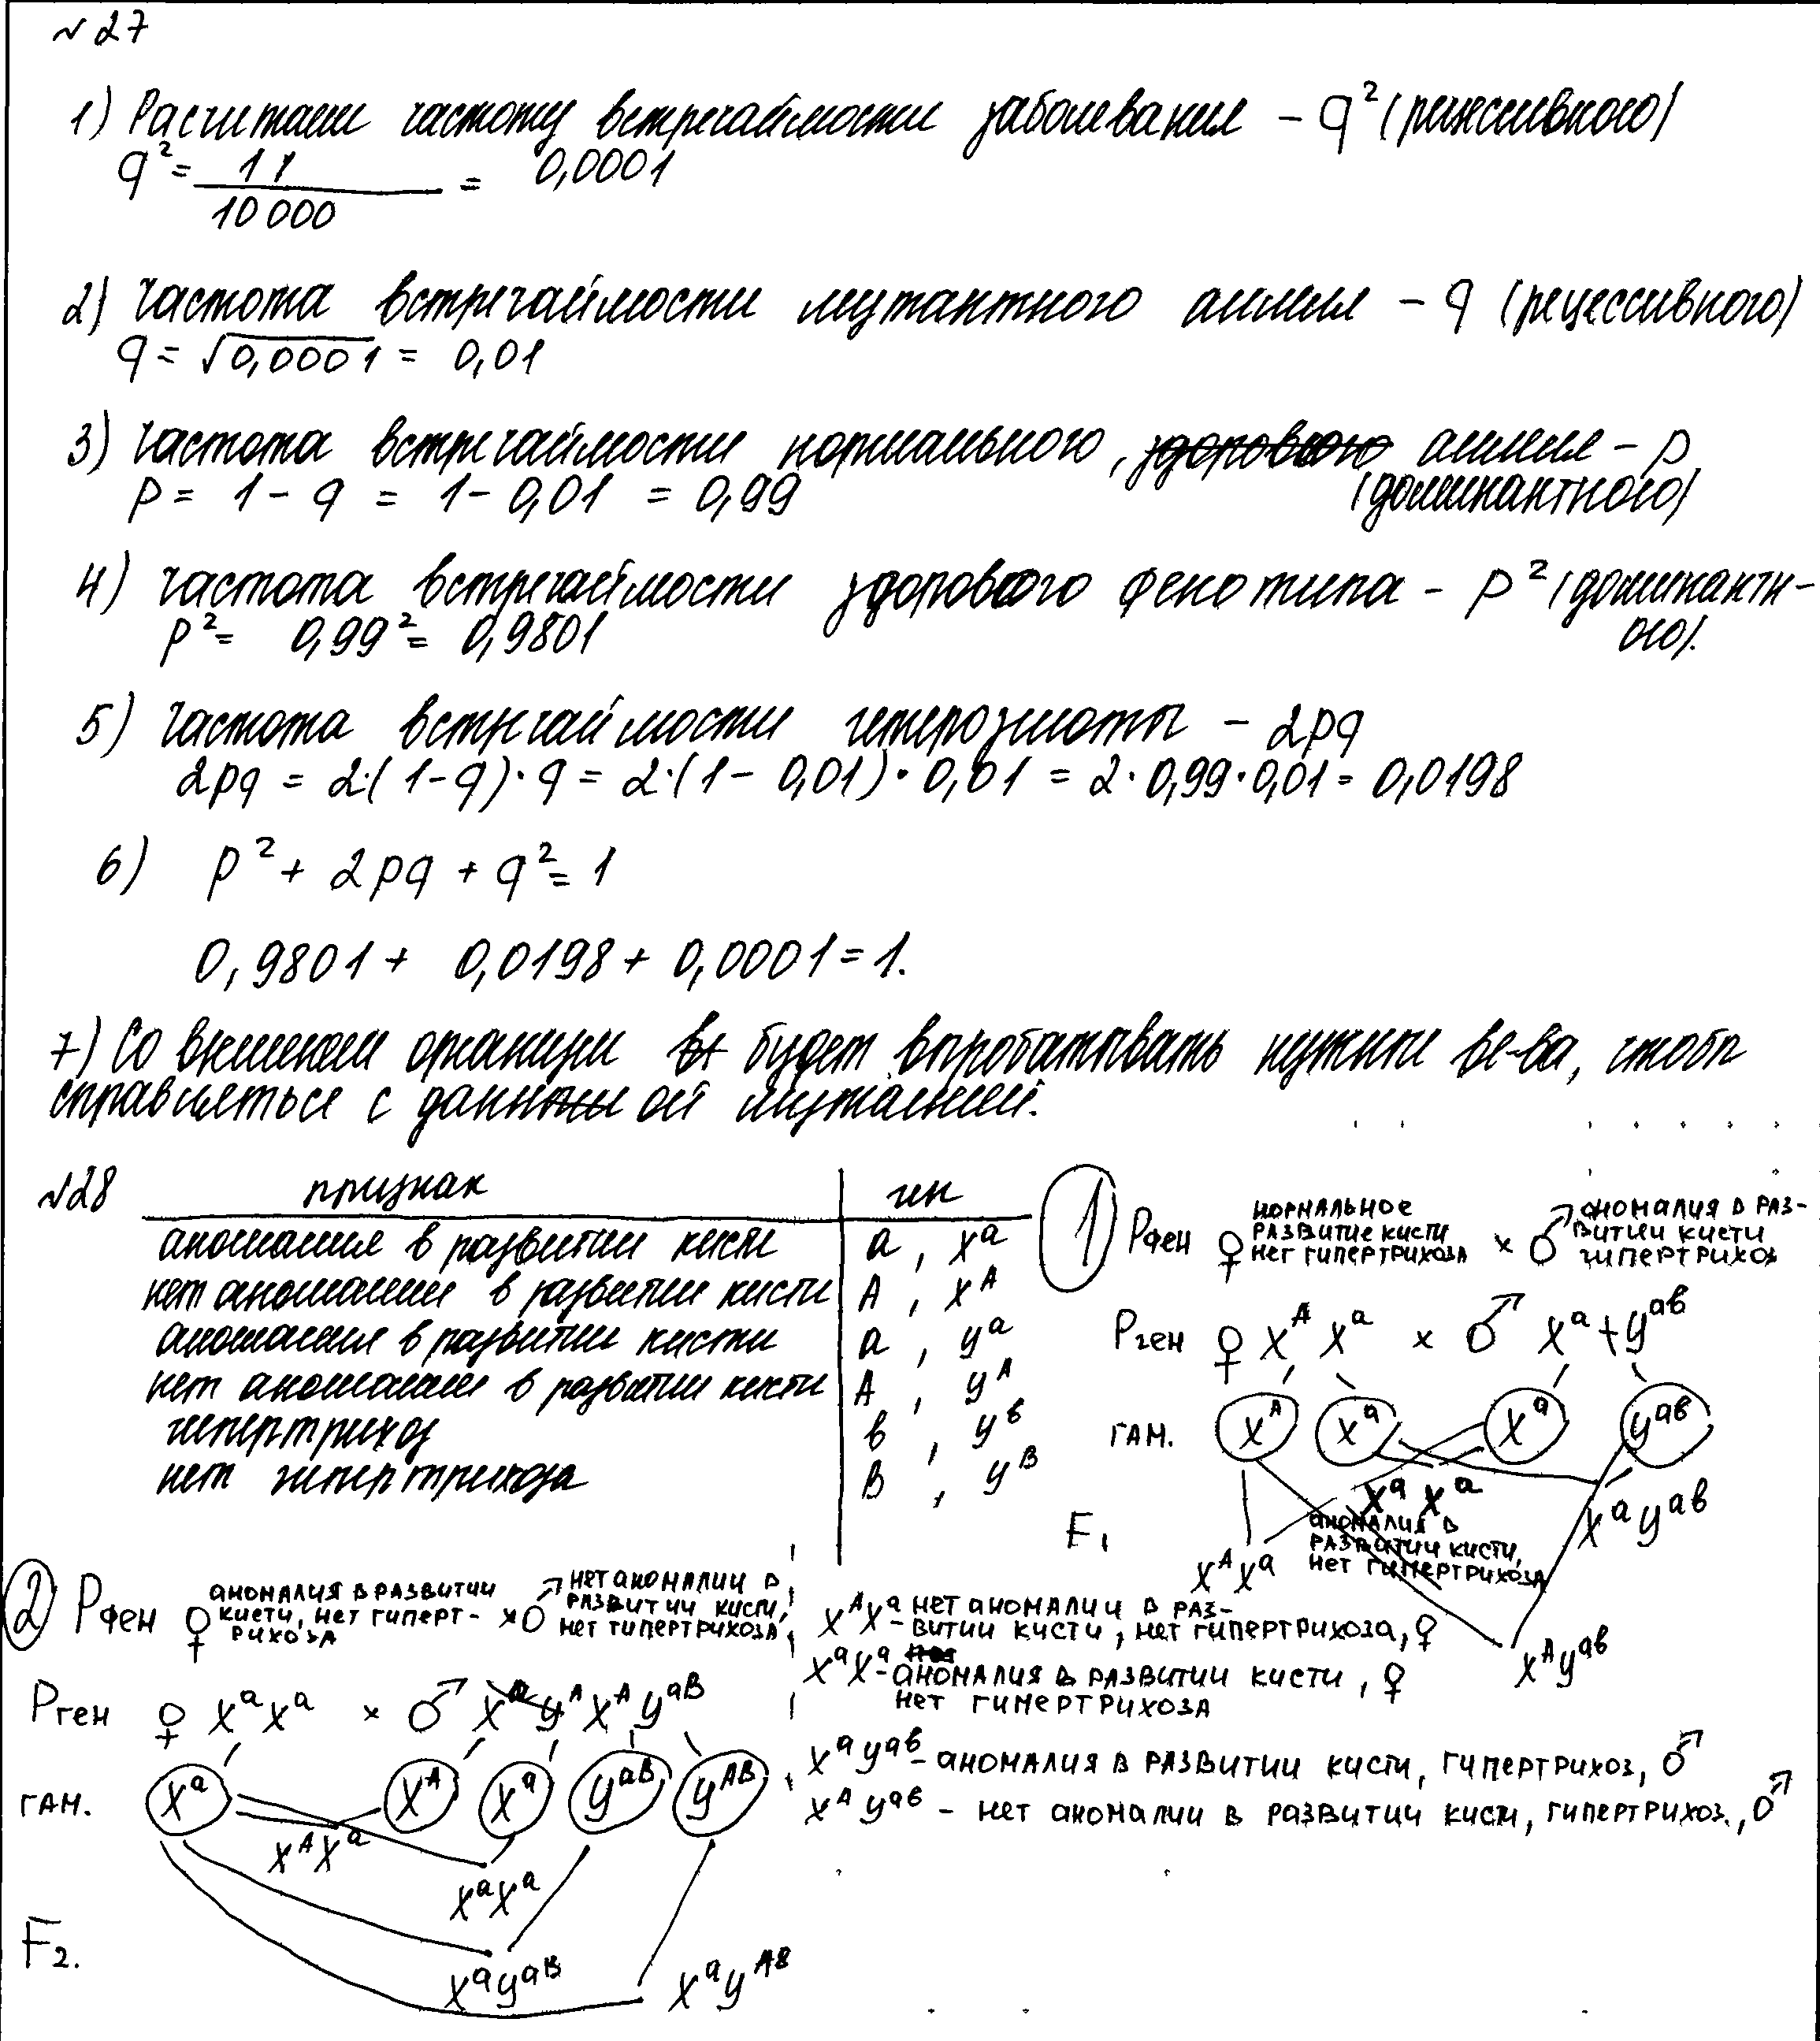 №27
1) Расчитаем частоту встречаймости заболевания - q² (рецессивного)
q² = 1 / 10 000 = 0,0001
2) Частота встречаймости мутантного аллеля - q (рецессивного)
q = √0,0001 = 0,01
3) Частота встречаймости нормального, здорового аллеля - p
(доминантного)
p = 1 - q = 1 - 0,01 = 0,99
4) Частота встречаймости здорового фенотипа - p² (доминантн-
ого).
p² = 0,99² = 0,9801
5) Частота встречаймости гетерозиготы - 2pq
2pq = 2·(1-q)·q = 2·(1 - 0,01)·0,01 = 2·0,99·0,01 = 0,0198
6) p² + 2pq + q² = 1
0,9801 + 0,0198 + 0,0001 = 1.
7) Со временем организм будет вырабатывать нужные ве-ва, чтобы
справляться с данной мутацией.
№28
признак | ген
аномалия в развитии кисти | a, Xᵃ
нет аномалии в развитии кисти | A, Xᴬ
аномалия в развитии кисти | a, yᵃ
нет аномалии в развитии кисти | A, yᴬ
гипертрихоз | в, yᵇ
нет гипертрихоза | B, yᴮ
1
Pфен ♀ нормальное развитие кисти нег гипертрихоза × ♂ аномалия в раз-
витии кисти гипертрихоз
Pген ♀ Xᴬ Xᵃ × ♂ Xᵃ + yᵃᵇ
гам. Xᴬ Xᵃ Xᵃ yᵃᵇ
F₁
XᴬXᵃ
XᵃXᵃ
аномалия в
развитии кисти,
нет гипертрихоза
Xᵃyᵃᵇ
Xᴬyᵃᵇ
XᴬXᵃ - нет аномалии в раз-
витии кисти, нет гипертрихоза, ♀
XᵃXᵃ - аномалия в развитии кисти, ♀
нет гипертрихоза
Xᵃyᵃᵇ - аномалия в развитии кисти, гипертрихоз, ♂
Xᴬyᵃᵇ - нет аномалии в развитии кисти, гипертрихоз., ♂
2
Pфен ♀ аномалия в развитии кисти, нет гиперт-
рихоза × ♂ нет аномалии в развитии кисти, нет гипертрихоза
Pген ♀ XᵃXᵃ × ♂ Xᵃ yᴬ Xᴬ yᵃᴮ
гам. Xᵃ Xᴬ Xᵃ yᵃᴮ yᴬᴮ
XᴬXᵃ
XᵃXᵃ
F₂.
Xᵃyᵃᴮ
Xᵃyᴬᴮ